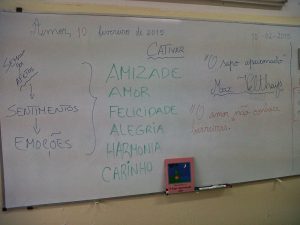 Amor, 10 fevereiro de 2015
10-02-2015
CATIVAR
SENTIMENTOS
EMOÇÕES
AMIZADE
AMOR
FELICIDADE
ALEGRIA
HARMONIA
CARINHO
"O sapo apaixonado"
Max Velthuijs
"O amor não conhece
barreiras."